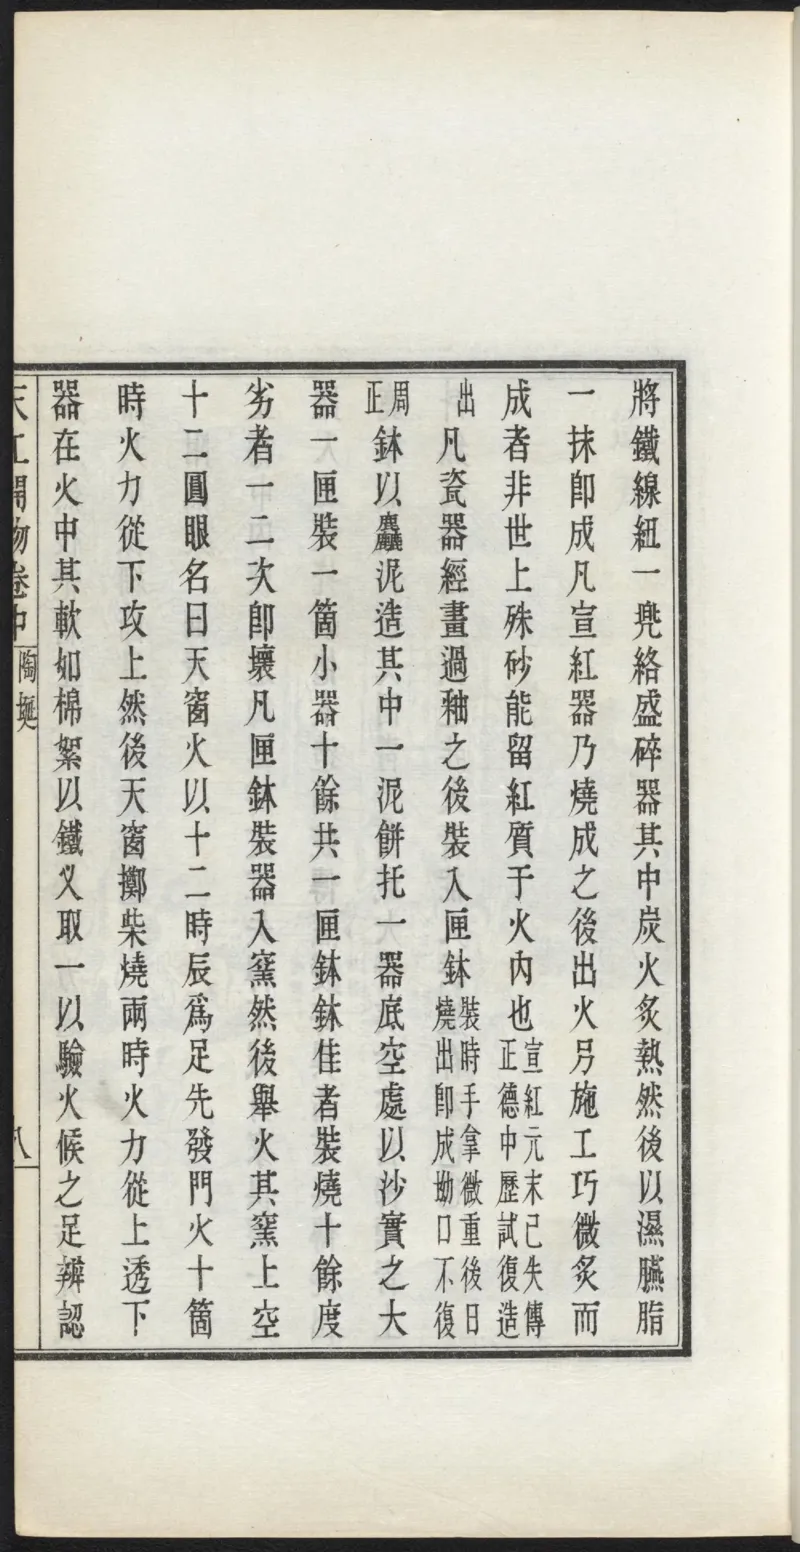 將鐵線紐一兠絡盛碎器其中炭火炙熱然後以濕臙脂
一抹卽成凡宣紅器乃燒成之後出火另施工巧微炙而
成者非世上殊砂能留紅質于火內也宣紅元末已失傳正德中歷試復造
出凡瓷器經畫過釉之後裝入匣鉢裝時手拿微重後日燒出卽成坳口不復
周正鉢以麤泥造其中一泥餅托一器底空處以沙實之大
器一匣裝一箇小器十餘共一匣鉢鉢佳者裝燒十餘度
劣者一二次卽壞凡匣鉢裝器入窯然後舉火其窯上空
十二圓眼名曰天窗火以十二時辰爲足先發門火十箇
時火力從下攻上然後天窗擲柴燒兩時火力從上透下
器在火中其軟如棉絮以鐵叉取一以驗火候之足辨認
天工開物卷中 陶埏 八